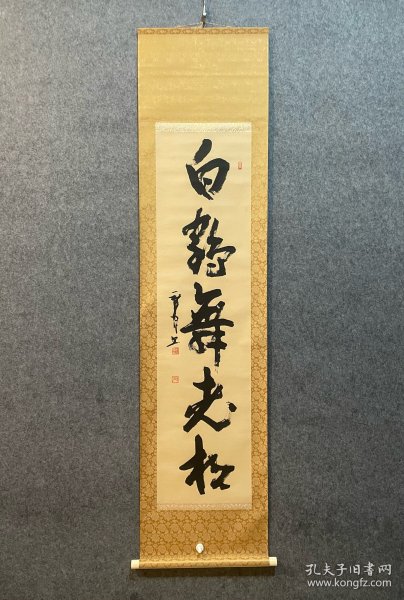 白鶴舞老松
孔夫子旧书网
www.kongfz.com